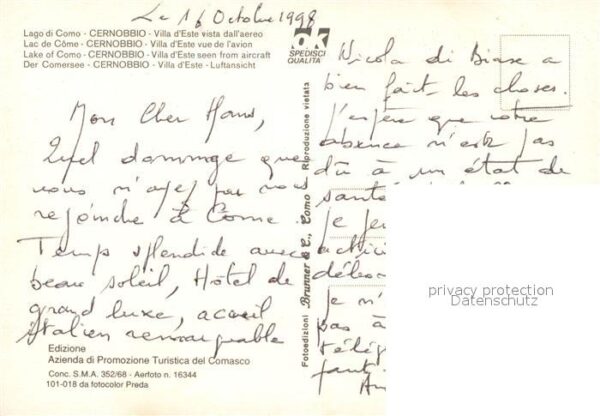 Le 16 Octobre 1998
Lago di Como - CERNOBBIO - Villa d'Este vista dall'aereo
Lac de Côme - CERNOBBIO - Villa d'Este vue de l'avion
Lake of Como - CERNOBBIO - Villa d'Este seen from aircraft
Der Comersee - CERNOBBIO - Villa d'Este - Luftansicht
SPEDISCI
QUALITÀ
Mon Cher Hans,
Quel dommage que
vous n'ayez pu nous
rejoindre à Come
Temps splendide avec
beau soleil, Hôtel de
grand luxe, accueil
italien remarquable
Edizione
Azienda di Promozione Turistica del Comasco
Conc. S.M.A. 352/68 - Aerfoto n. 16344
101-018 da fotocolor Preda
Fotoedizioni Brunner & C., Como Riproduzione vietata
Nicola di Biase a
bien fait les choses.
J'espère que votre
absence n'est pas
dû à un état de
santé
je
je n'
pas à
télép
privacy protection
Datenschutz